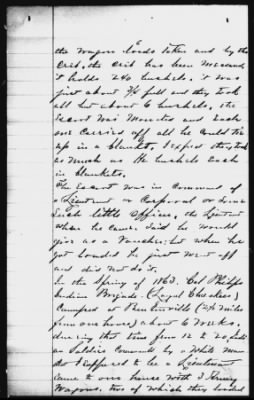 the wagon loads taken and by the
Crib, the crib has been measured,
it holds 240 bushels. it was
just about 3/4 full and they took
all but about 6 bushels, the
Escort was Mounted and each
one carried off all he could tie
up in a blanket, I expect they took
as much as bushels each
in blankets.
The Escort was in Command of
a Lieutenant or Corporal or some
such little officer, the Lieutent
when he came said he would
give us a Voucher; but when he
got loaded he just went off
and did not do it.
In the Spring of 1863. Col Philips
Indian Brigade (Loyal Cherokees)
Camped at Bentonville (2½ miles
from our house) about 6 weeks,
during that time from 12 to 20
Soldiers Command by a White man
I supposed to be a Lieutenant
came to our house with 3 Army
Wagons, two of which they loaded